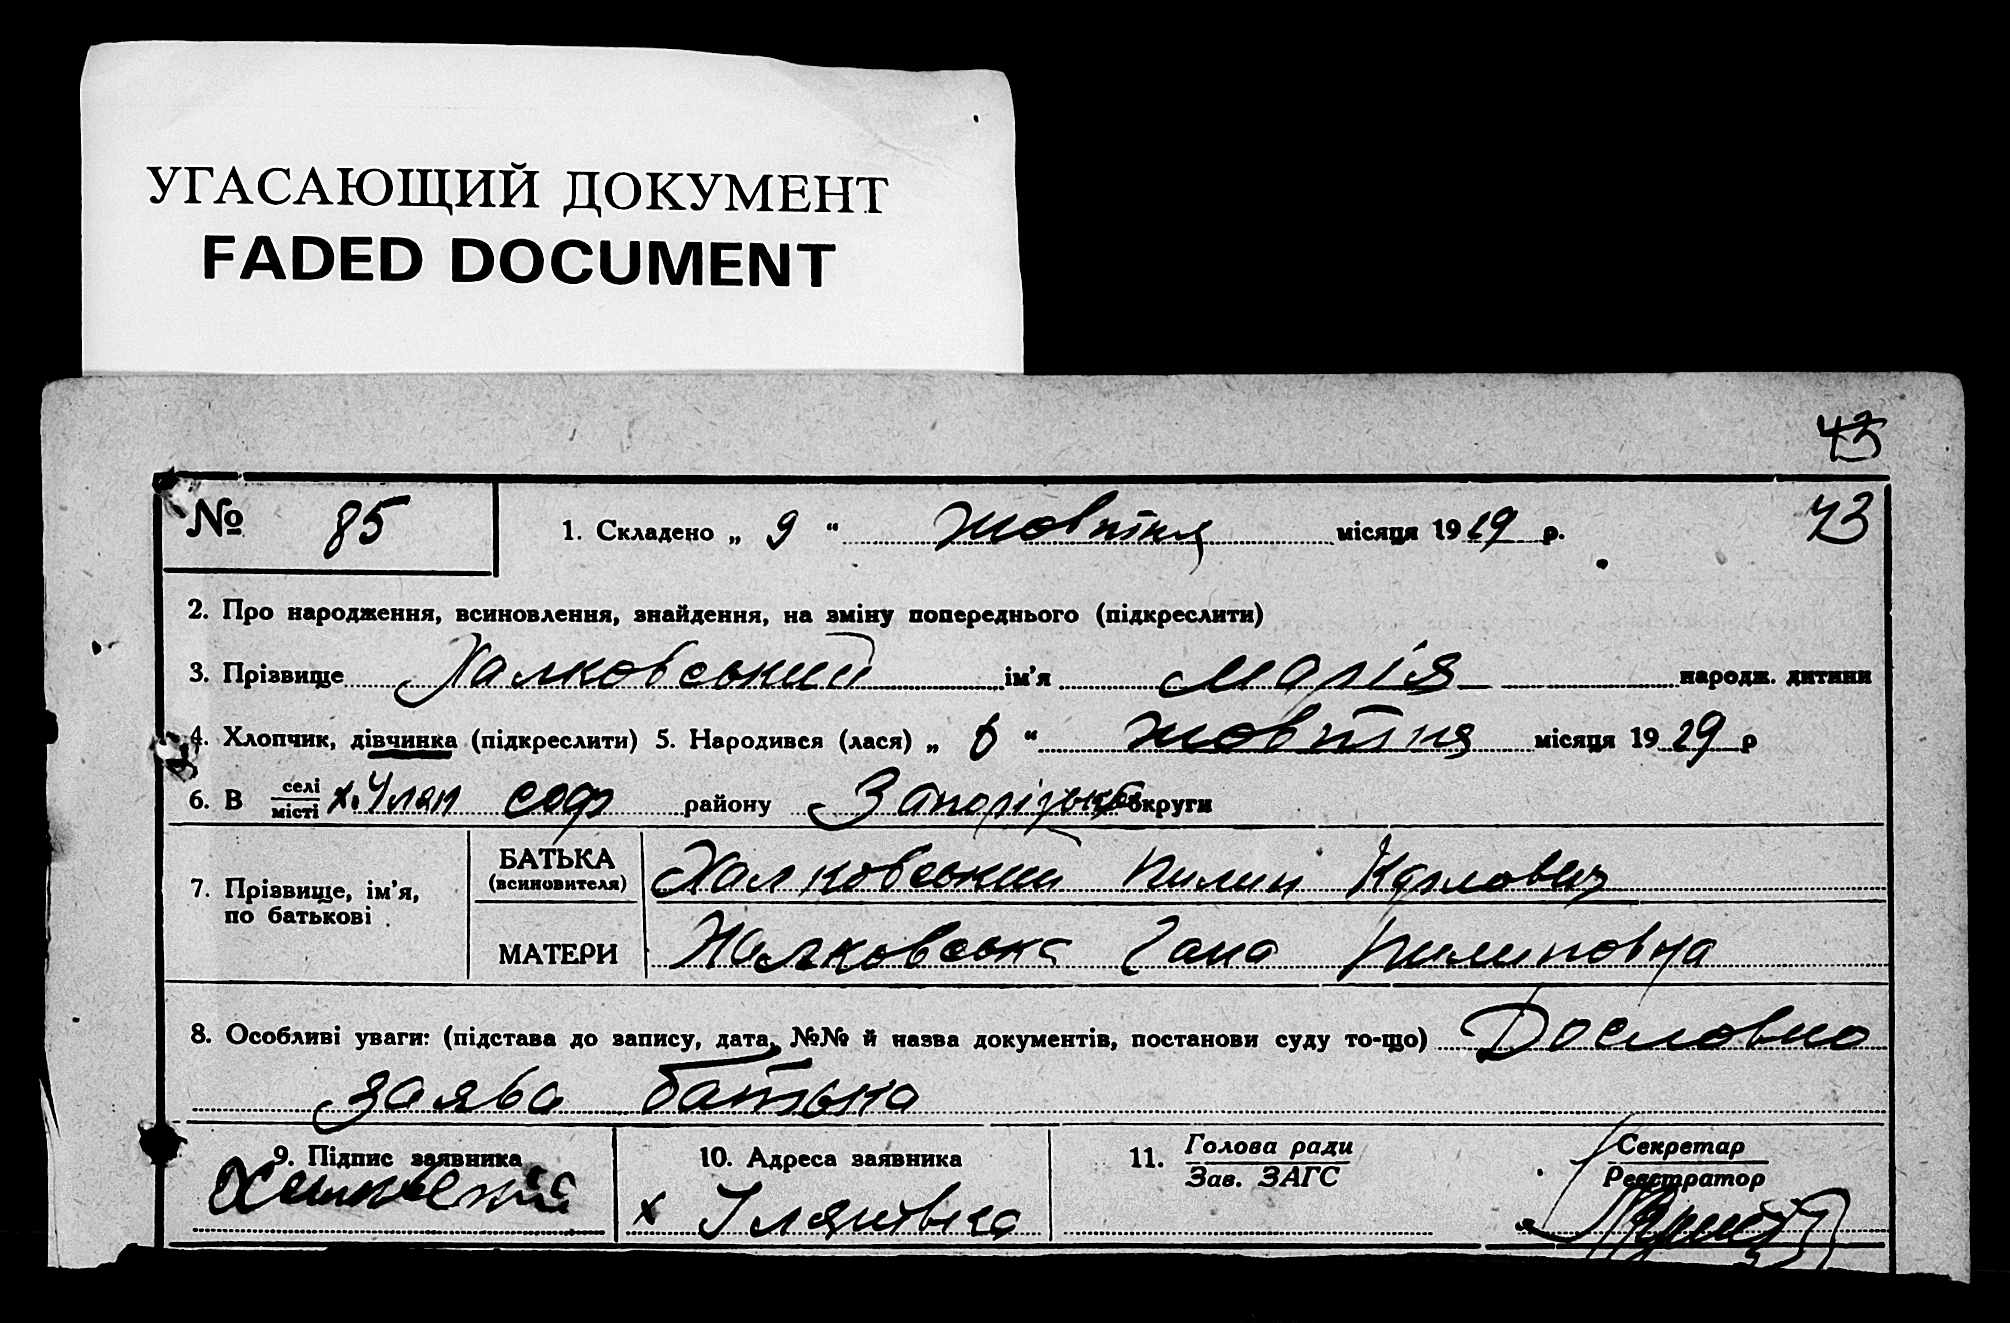 УГАСАЮЩИЙ ДОКУМЕНТ
FADED DOCUMENT
43
№ 85
1. Складено „ 9 “ жовтня місяця 1929 р. 43
2. Про народження, всиновлення, знайдення, на зміну попереднього (підкреслити)
3. Прізвище Халковський ім’я Марія народж. дитини
4. Хлопчик, дівчинка (підкреслити) 5. Народився (лася) „ 6 “ жовтня місяця 1929 р
6. В селі місті х. Улян Соф району Запорізької округи
7. Прізвище, ім’я, по батькові
БАТЬКА (всиновителя) Халковський Пилип Карлович
МАТЕРИ Халковська Гана Пилиповна
8. Особливі уваги: (підстава до запису, дата, №№ й назва документів, постанови суду то-що) Дословно
заява батька
9. Підпис заявника
10. Адреса заявника
х
11. Голова ради
Зав. ЗАГС
Секретар
Реєстратор